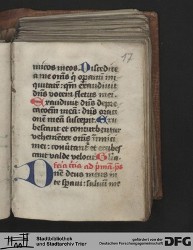 17
micos meos. Discedite
a me om̄s q̄ operami ini
quitatē: qm̄ exaudiuit
dn̄s vocem fletus mei.
Exaudiuit dn̄s depre
cacōem meā: dn̄s orati
onem meā suscepit. Eru
bescant et conturbentur
vehementer om̄s inimici
mei: conuertant et erubes
cant valde velociter. Gl'ia
Deus in nomi
ne tuo saluū me
Stadtbibliothek
und Stadtarchiv Trier
gefördert von der
Deutschen Forschungsgemeinschaft
DFG